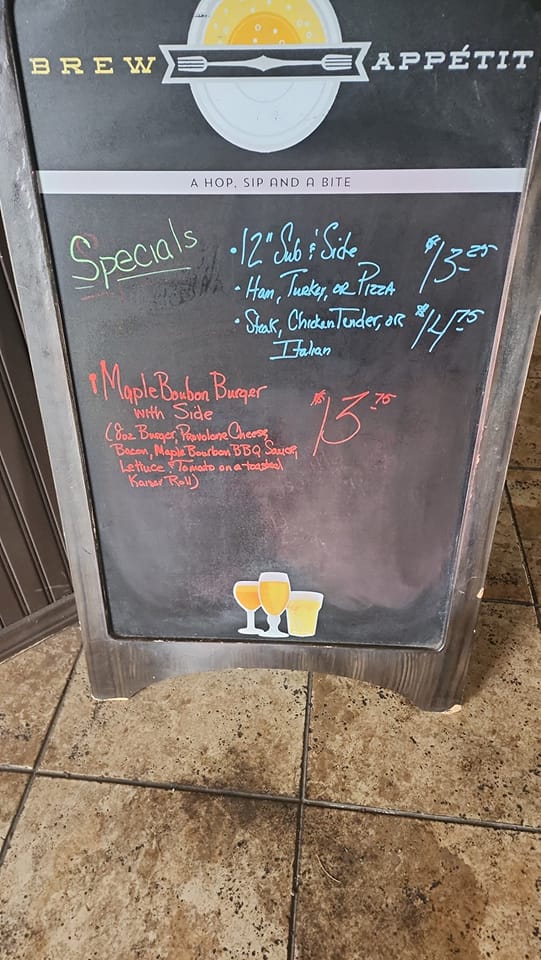 BREW APPÉTIT
A HOP, SIP AND A BITE
Specials
• 12" Sub & Side $13.25
• Ham, Turkey, OR PIZZA
• Steak, Chicken Tender, OR $14.75
Italian
• Maple Bourbon Burger
with Side $13.75
(8oz Burger, Provolone Cheese,
Bacon, Maple Bourbon BBQ Sauce,
Lettuce & Tomato on a toasted
Kaiser Roll)